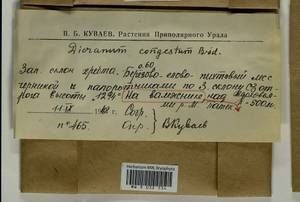 В. Б. КУВАЕВ. Растения Приполярного Урала
Dicranum congestum Brid.
0.60
Зап. склон хребта. Березово-елово-пихтовый лес
черникой и папоротниками по З склону СЗ от-
рога высоты "1294" На валежнике над
500м.
Собр.
nº 465. Опр. В Куваев
Herbarium MW, Bryophyta